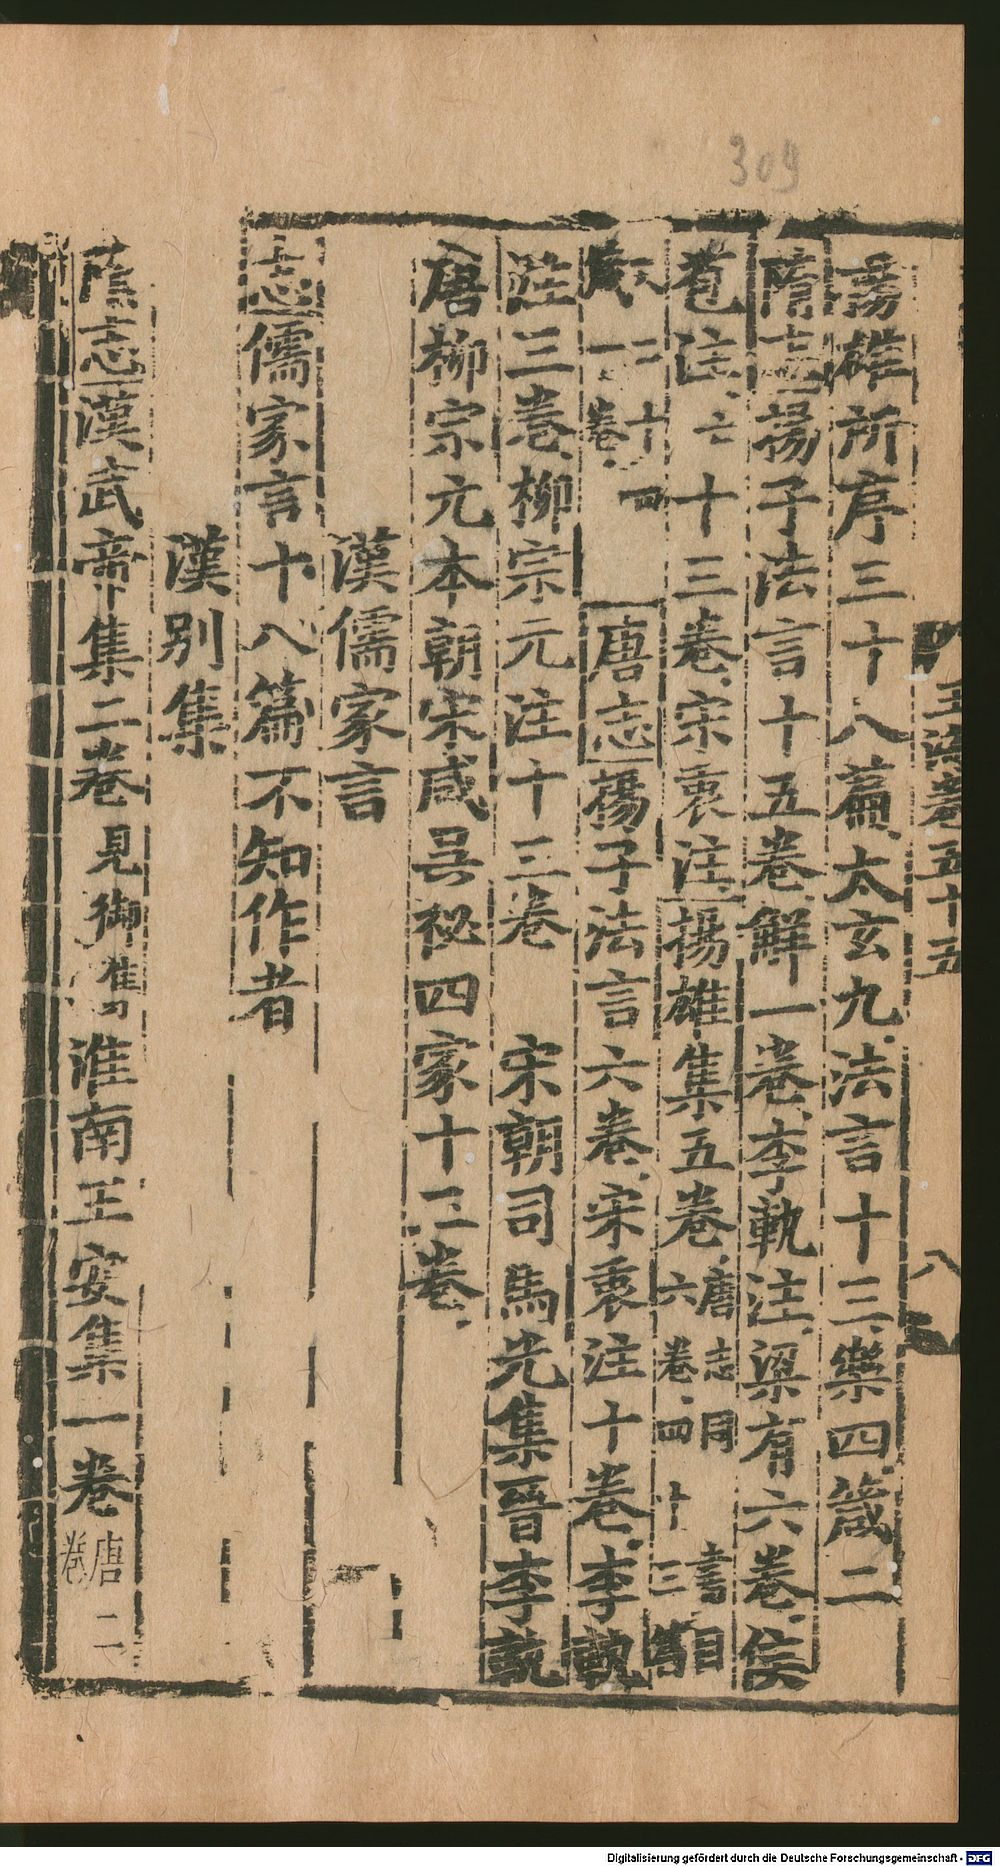 309
玉海卷五十五 八
揚雄所序三十八篇、太玄九、法言十三、樂四、箴二
隋志揚子法言十五卷、解一卷、李軌注、梁有六卷、侯
苞注、亡十三卷、宋衷注、揚雄集五卷、唐志同 書目六卷、四十三篇
箴二十四 一卷、唐志揚子法言六卷、宋衷注十卷、李軌
注三卷、柳宗元注十三卷 宋朝司馬光集晉李軌
唐柳宗元本朝宋咸吳祕四家十二卷、
漢儒家言
志儒家言十八篇不知作者
漢別集
隋志漢武帝集二卷見御製淮南王安集一卷唐二卷
Digitalisierung gefördert durch die Deutsche Forschungsgemeinschaft - DFG